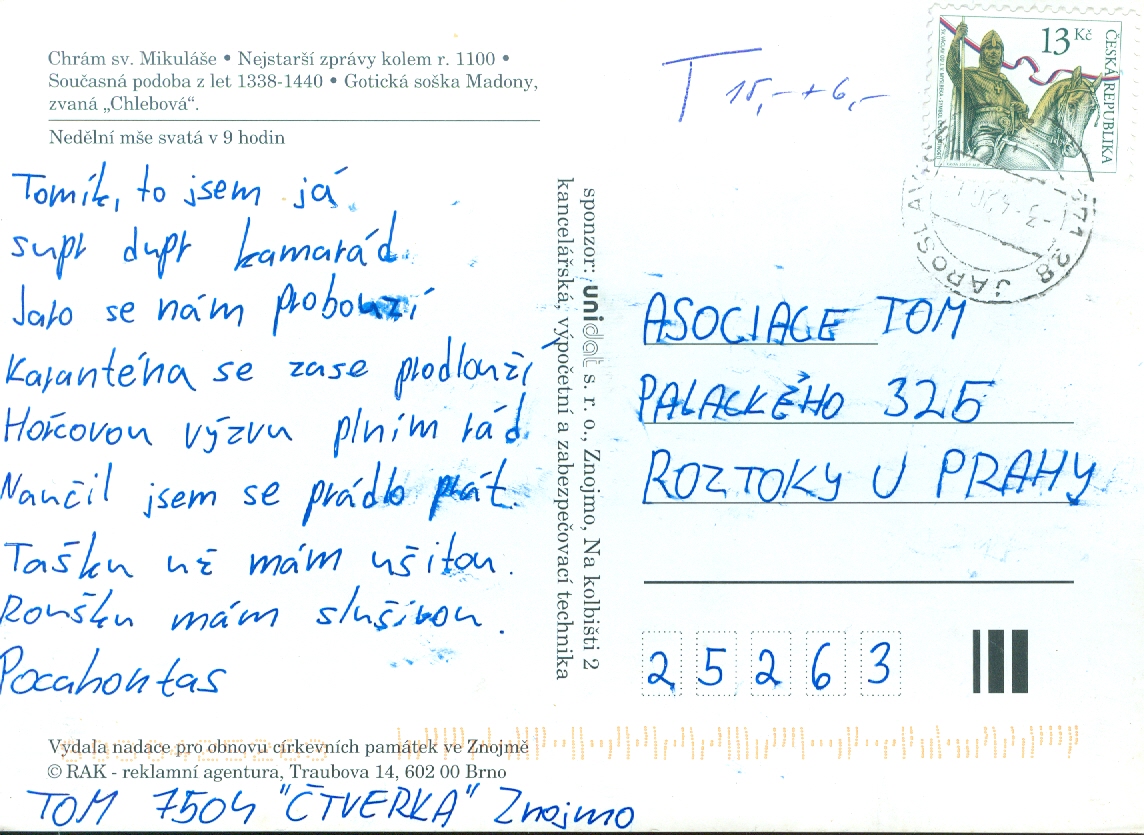 Chrám sv. Mikuláše • Nejstarší zprávy kolem r. 1100 •
Současná podoba z let 1338-1440 • Gotická soška Madony,
zvaná „Chlebová“.
Nedělní mše svatá v 9 hodin
Tomík, to jsem já
supr dupr kamarád.
Jaro se nám probouzí
Karanténa se zase prodlouží
Hořcovou výzvu plním rád.
Naučil jsem se prádlo prát.
Tašku už mám ušitou.
Roušku mám slušivou.
Pocahontas
Vydala nadace pro obnovu církevních památek ve Znojmě
© RAK - reklamní agentura, Traubova 14, 602 00 Brno
TOM 7504 "ČTVERKA" Znojmo
sponzor: unidat s. r. o., Znojmo, Na kolbišti 2
kancelářská, výpočetní a zabezpečovací technika
T 15,- + 6,-
13 Kč
ČESKÁ REPUBLIKA
371 28 JAROSLAV
ASOCIACE TOM
PALACKÉHO 325
ROZTOKY U PRAHY
25263